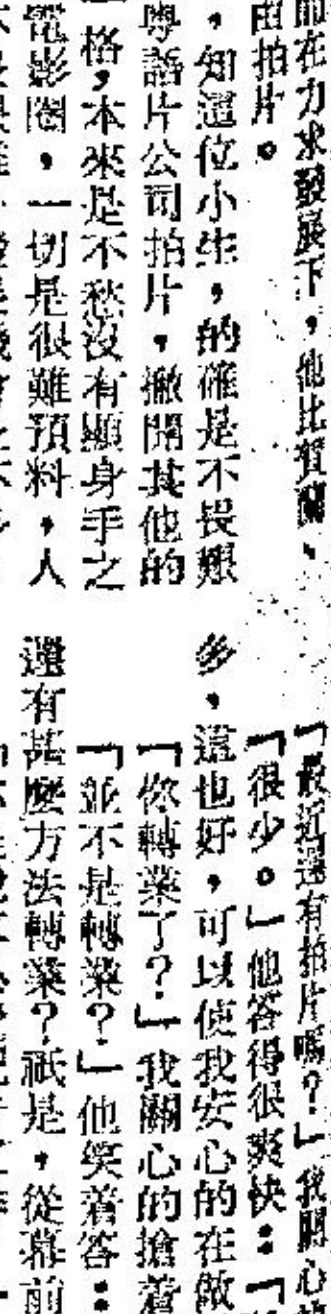 而在力求發展下，他比賀蘭、
由拍片。
，知這位小生，的確是不畏艱
粵語片公司拍片，撇開其他的
格，本來是不愁沒有顯身手之
電影圈，一切是很難預料，人
「最近還有拍片嗎？」我關心
「很少。」他答得很爽快：「
多，這也好，可以使我安心的在做
「你轉業了？」我關心的搶着
「並不是轉業？」他笑着答：
還有甚麼方法轉業？祇是，從幕前